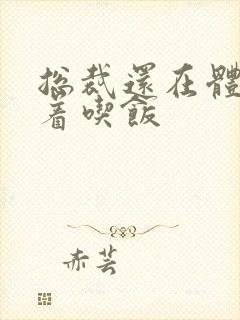 总裁還在體
着喫飯
赤芸